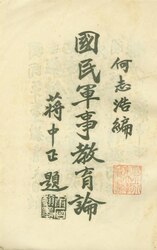 何志浩編
國民軍事教育論
蔣中正題